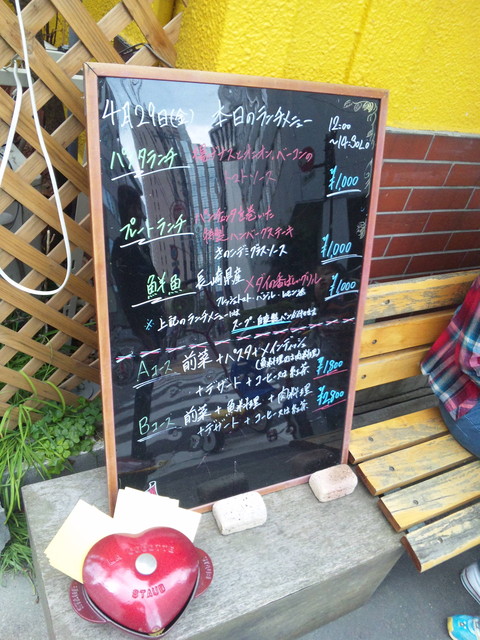 4月29日(金) 本日のランチメニュー
12:00
~14:30L.O
パスタランチ ナスとオニオン、ベーコンの
トマトソース
¥1,000
プレートランチ パンチェッタを巻いた
特製ハンバーグステーキ
きのこデミグラスソース
¥1,000
鮮魚 長崎県産 メダイの香ばしグリル
フレッシュトマト・バジル・レモン
¥1,000
※ 上記のランチメニューには
スープ・自家製パンが付きます
Aコース 前菜 + パスタ + メインディッシュ
(魚料理又は肉料理)
+ デザート + コーヒー又は紅茶
¥1,800
Bコース 前菜 + 魚料理 + 肉料理
+ デザート + コーヒー又は紅茶
¥2,800
STAUB